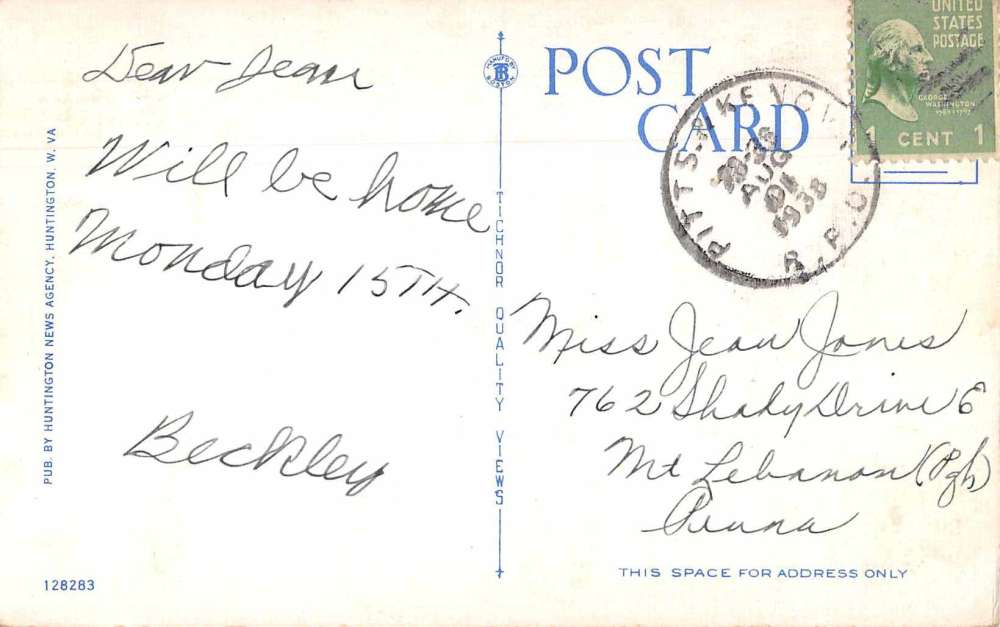 Dear Jean
Will be home
Monday 15TH.
Beckley
PUB. BY HUNTINGTON NEWS AGENCY, HUNTINGTON, W. VA
128283
MANUF BY
TB
BOSTON
TICHNOR QUALITY VIEWS
POST
CARD
PITTS
AUG
1938
R.P.O.
UNITED
STATES
POSTAGE
GEORGE
WASHINGTON
1 CENT 1
Miss Jean Jones
762 Shady Drive E
Mt Lebanon (Pgh)
Penna
THIS SPACE FOR ADDRESS ONLY